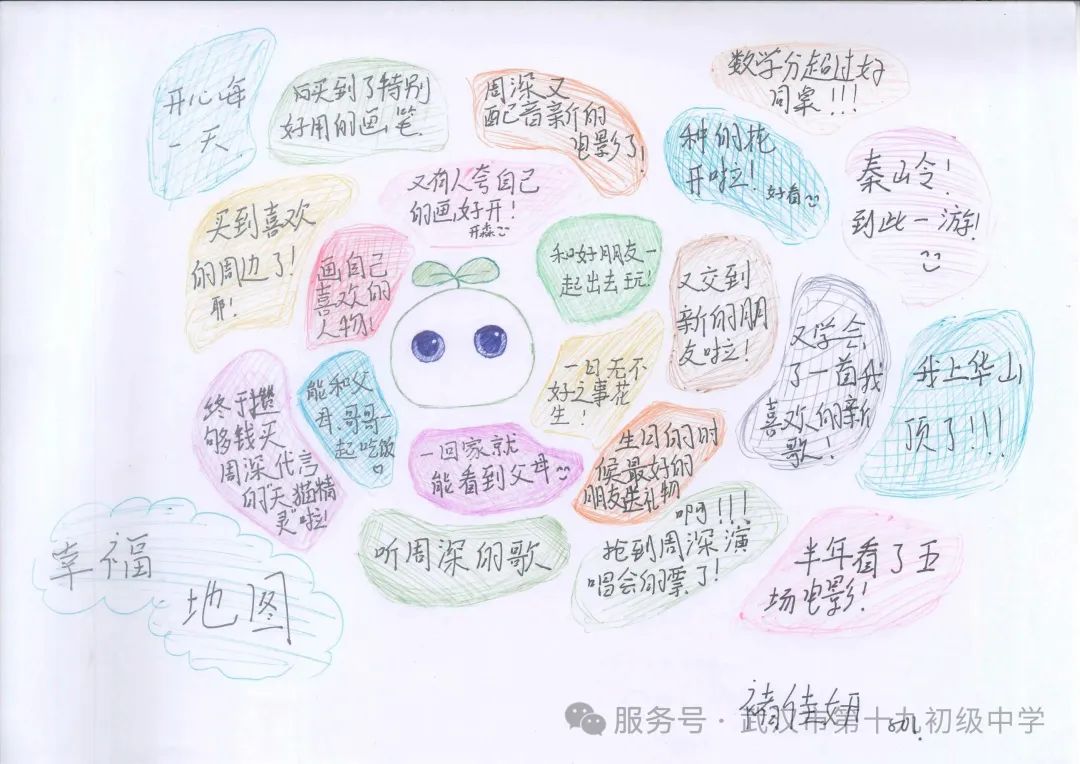 开心每
一天
买到了特别
好用的画笔
周深又
配音新的
电影了!
数学分超过好
同桌!!!
种的花
开啦!
好看
秦岭!
到此一游!
又有人夸自己
的画好开!
开森
买到喜欢
的周边了!
耶!
画自己
喜欢的
人物!
和好朋友一
起出去玩!
又交到
新的朋
友啦!
又学会
了一首我
喜欢的新
歌!
我上华山
顶了!!!
一日无不
好之事花
生!
终于攒
够钱买
周深代言
的"天猫精
灵"啦!
能和父
母,哥哥一
起吃饭
一回家就
能看到父母
生日的时
候最好的
朋友送礼物
听周深的歌
啊!!!
抢到周深演
唱会的票了!
半年看了五
场电影!
幸福
地图
褚佳妍
服务号·武汉市第十九初级中学